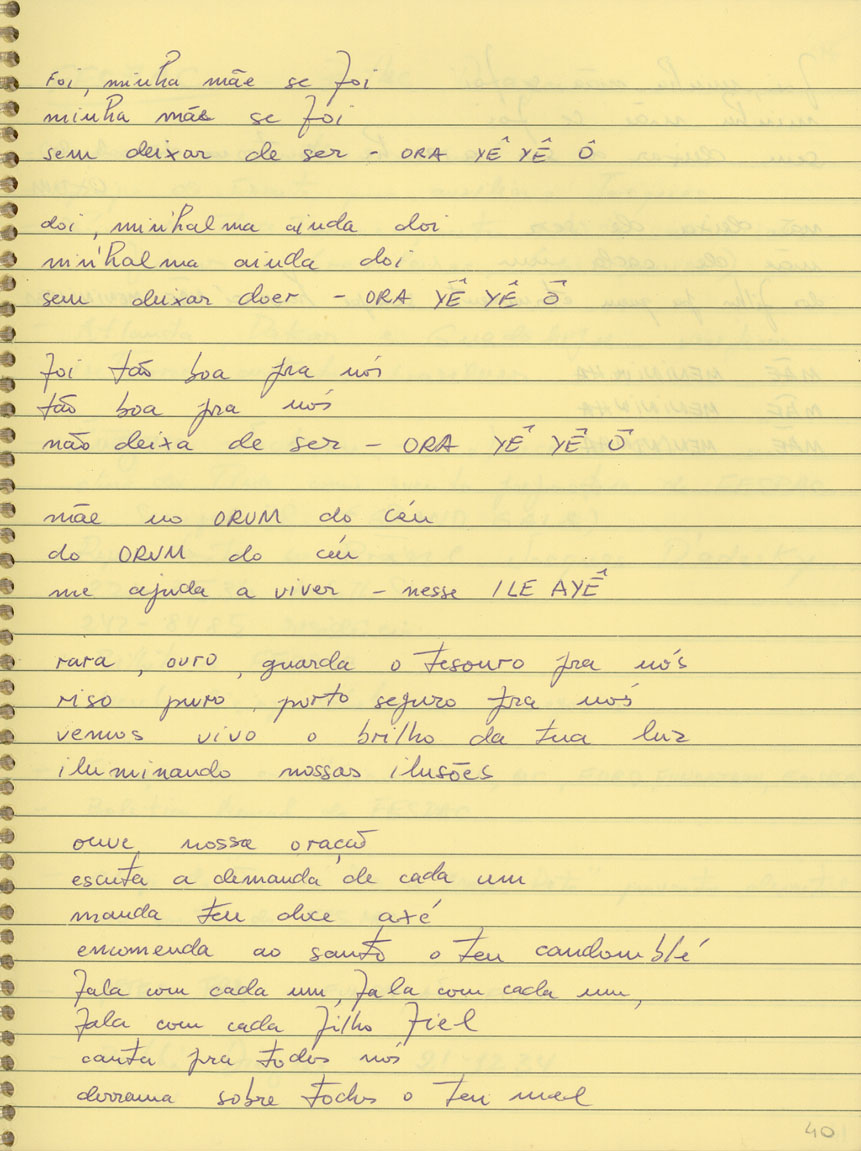 Foi, minha mãe se foi
minha mãe se foi
sem deixar de ser - ORA YÊ YÊ Ô
doi, minh'alma ainda doi
minh'alma ainda doi
sem deixar doer - ORA YÊ YÊ Ô
foi tão boa pra nós
tão boa pra nós
não deixa de ser - ORA YÊ YÊ Ô
mãe no ORUM do céu
do ORUM do céu
me ajuda a viver - nesse ILE AYÊ
rara, ouro, guarda o tesouro pra nós
riso puro, porto seguro pra nós
vemos vivo o brilho da tua luz
iluminando nossas ilusões
ouve nossa oração
escuta a demanda de cada um
manda teu doce axé
encomenda ao santo o teu candomblé
fala com cada um, fala com cada um,
fala com cada filho fiel
canta pra todos nós
derrama sobre todos o teu mel
40